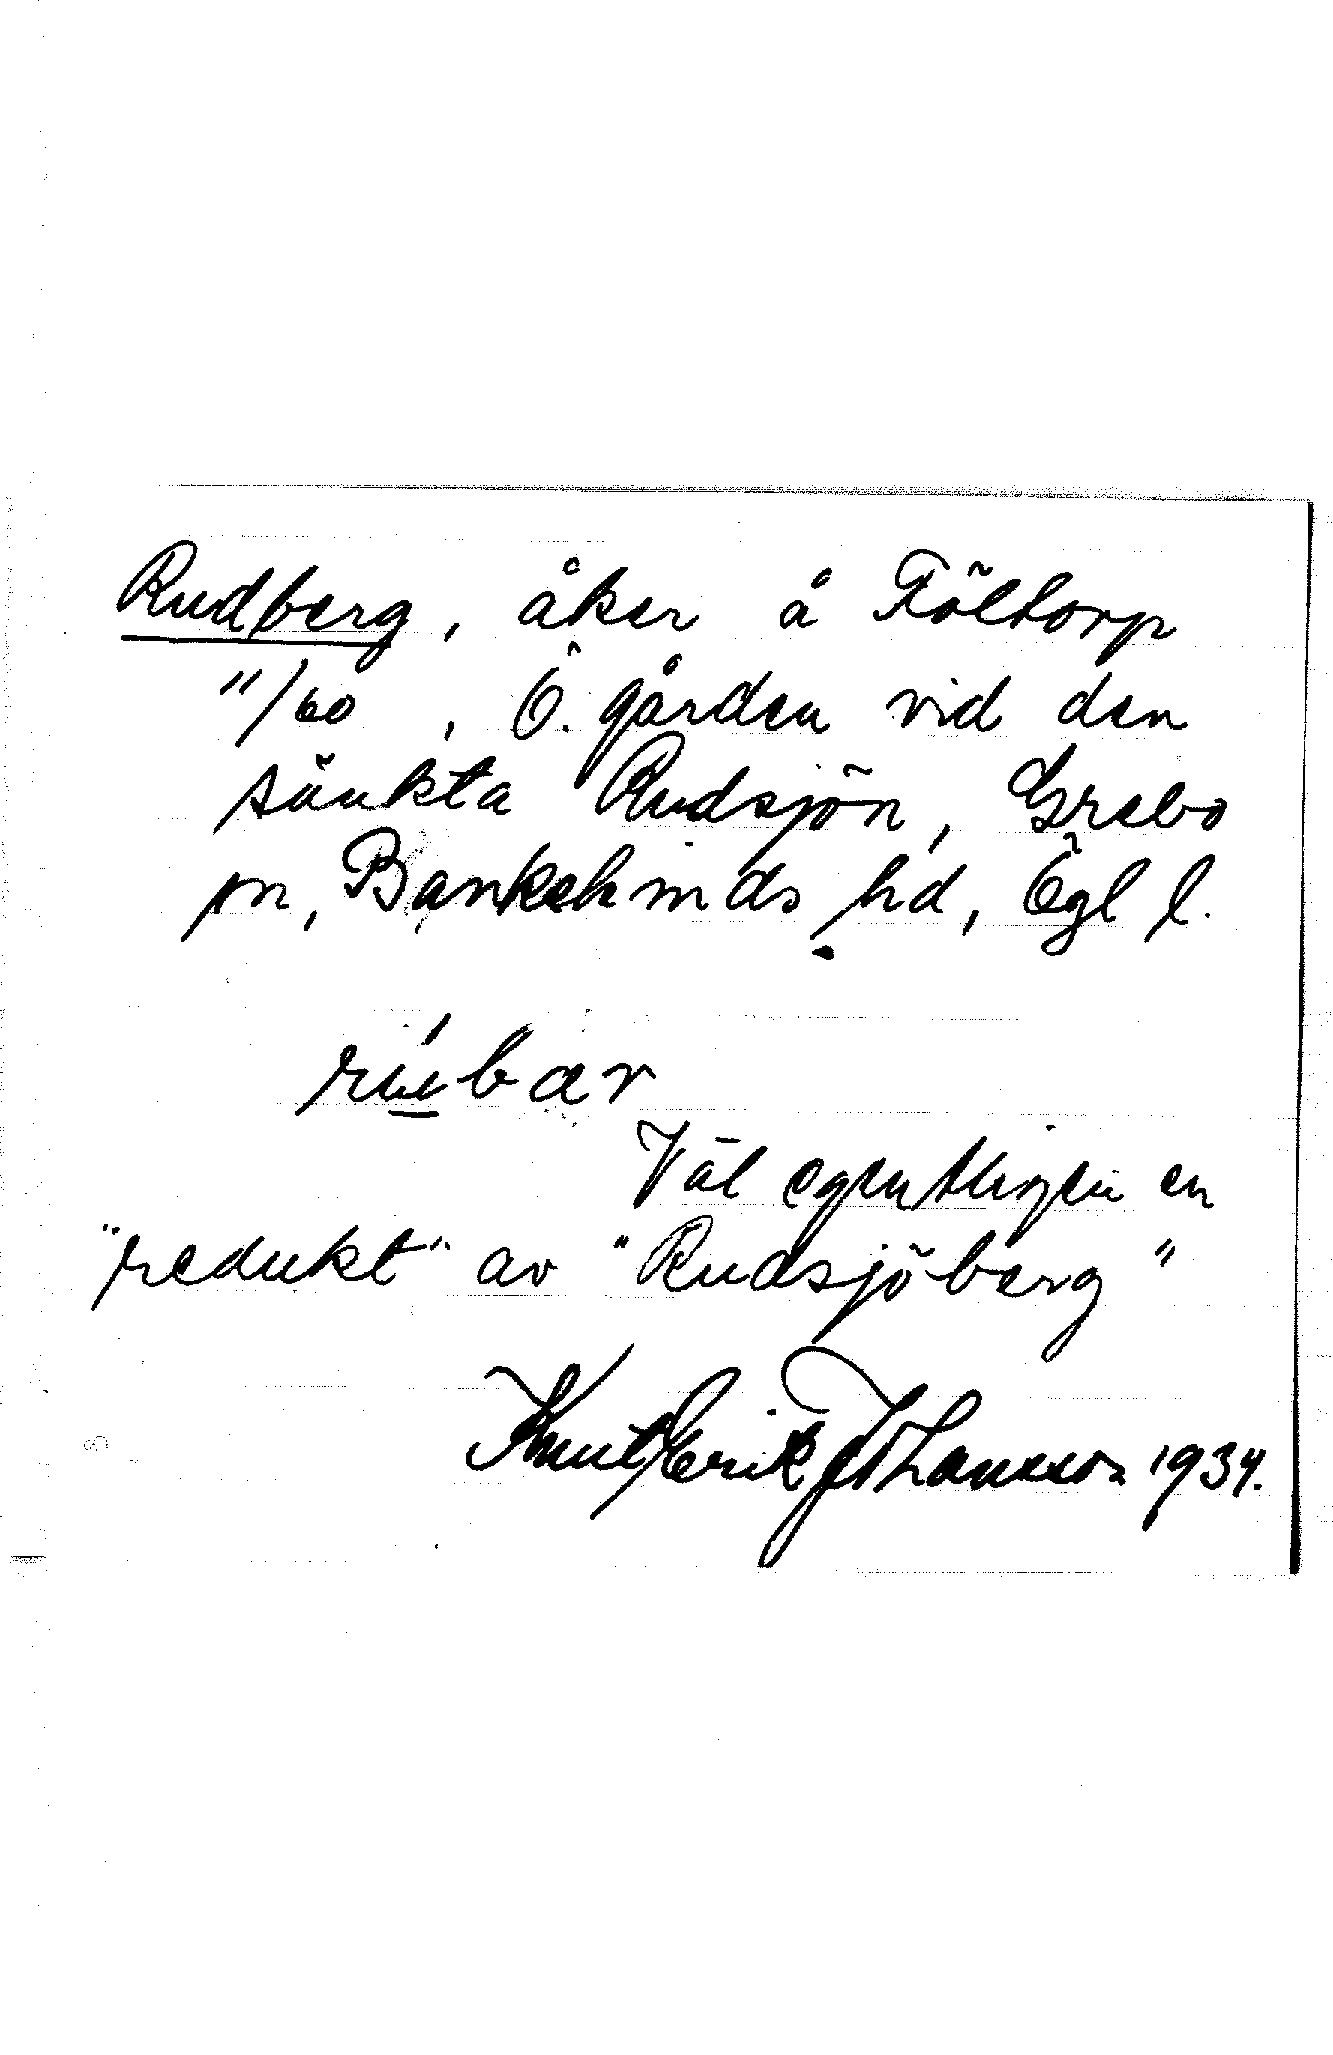 Rudberg, åker å Föltorp
"/60, Ö. gården vid den
sänkta Rudsjön, Grebo
sn, Bankekinds hd, Ögl l.
rúbær
Väl egentligen en
"redukt" av "Rudsjöberg"
Knut Erik Johansson 1934.